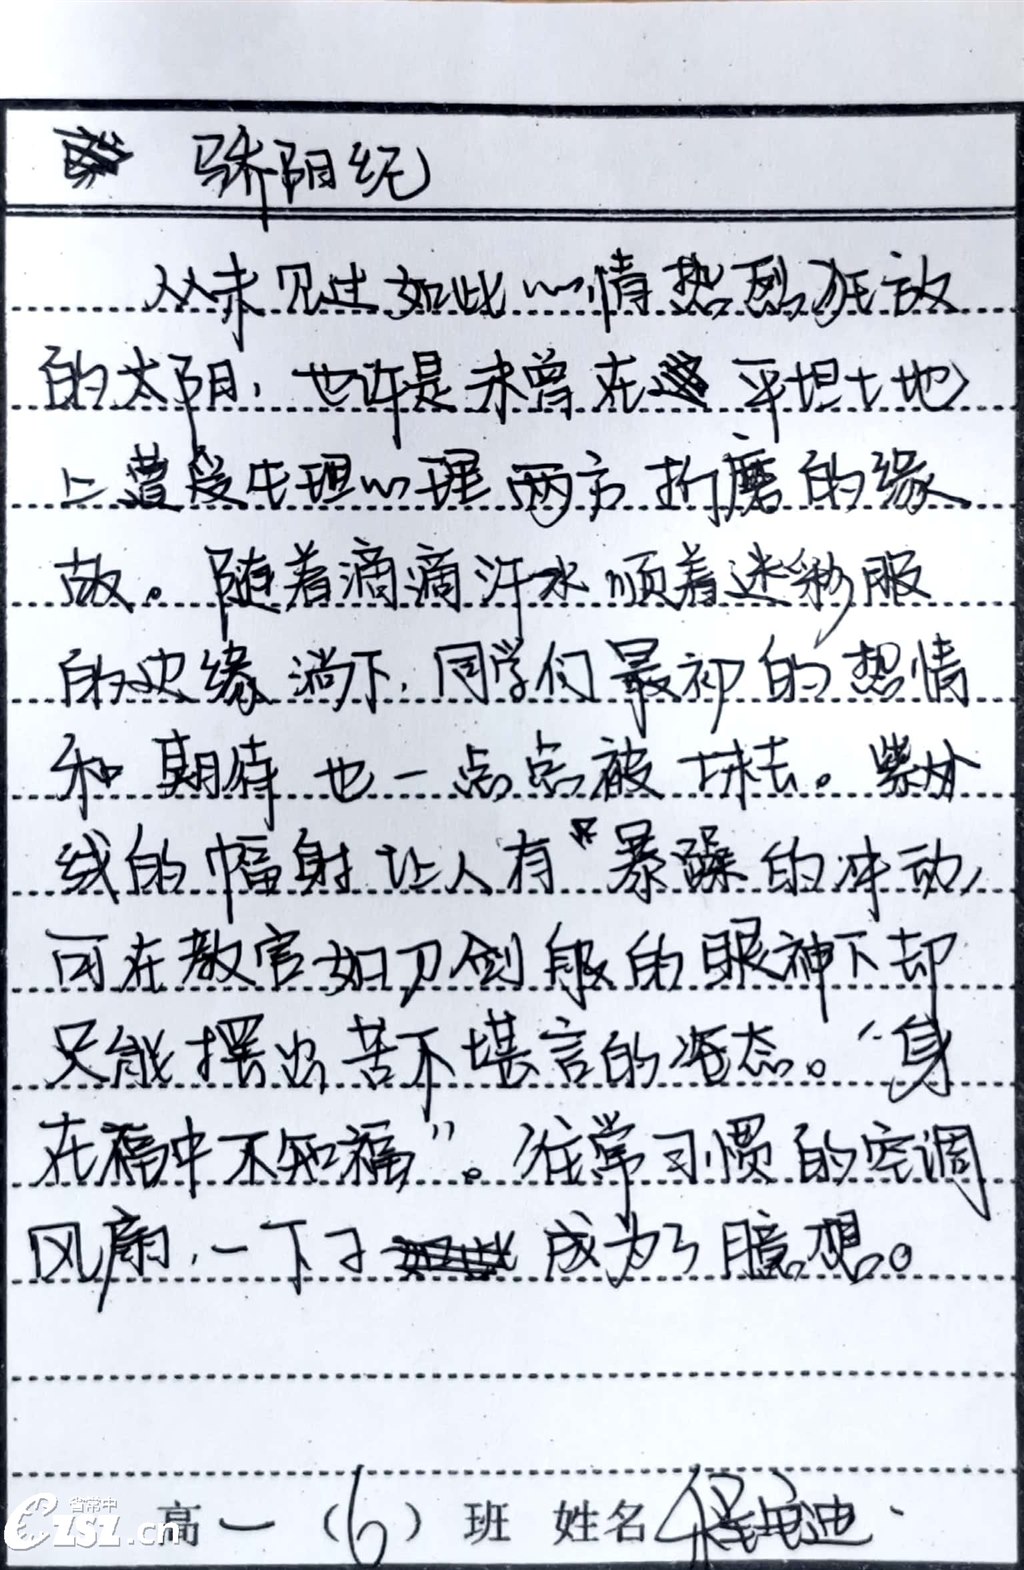 骄阳纪
从未见过如此心情热烈狂放
的太阳，也许是未曾在平坦土地
上遭受生理心理两方折磨的缘
故。随着滴滴汗水顺着迷彩服
的边缘淌下，同学们最初的热情
和期待也一点点被抹去。紫外
线的幅射让人有暴躁的冲动，
可在教官如刀剑般的眼神下却
只能摆出苦不堪言的姿态。“身
在福中不知福”。往常习惯的空调
风扇，一下子成为了臆想。
高一（6）班 姓名
省常中
CZSZ.cn